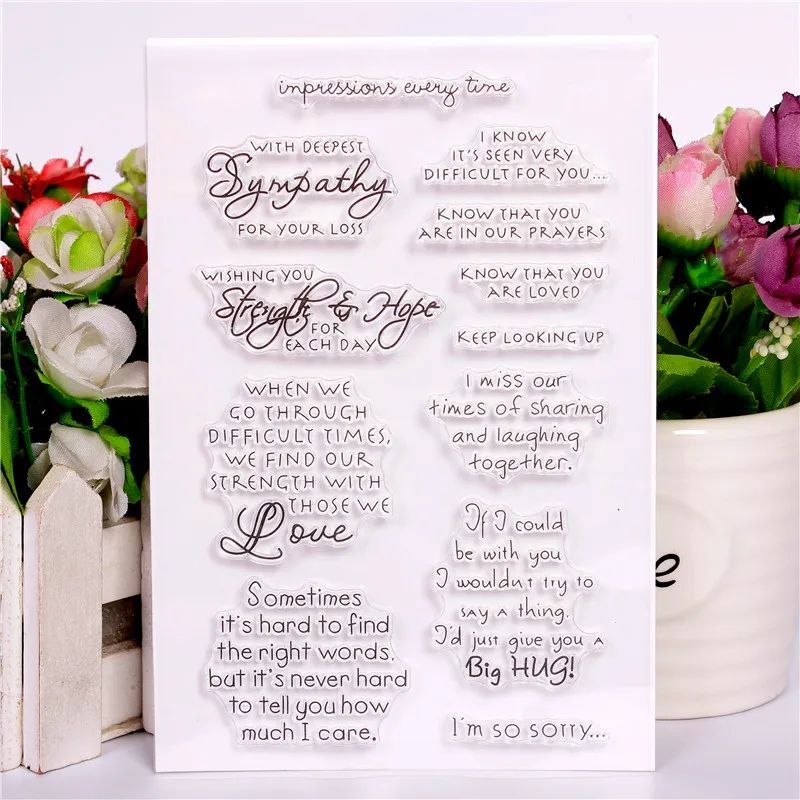 impressions every time
WITH DEEPEST
Sympathy
FOR YOUR LOSS
WISHING YOU
Strength & Hope
FOR
EACH DAY
WHEN WE
GO THROUGH
DIFFICULT TIMES,
WE FIND OUR
STRENGTH WITH
THOSE WE
Love
Sometimes
it's hard to find
the right words,
but it's never hard
to tell you how
much I care.
I KNOW
IT'S SEEN VERY
DIFFICULT FOR YOU...
KNOW THAT YOU
ARE IN OUR PRAYERS
KNOW THAT YOU
ARE LOVED
KEEP LOOKING UP
I miss our
times of sharing
and laughing
together.
If I could
be with you
I wouldn't try to
say a thing.
I'd just give you a
Big HUG!
I'm so sorry...
e